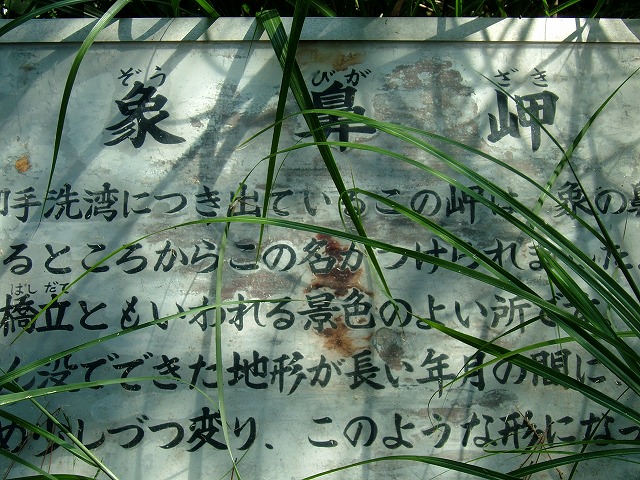 ぞう びが ざき
象鼻岬
手洗湾につき出ているこの岬は、象の鼻
るところからこの名がつけられました
はしだて
橋立ともいわれる景色のよい所です
没でできた地形が長い年月の間に
少しづつ変り、このような形になっ